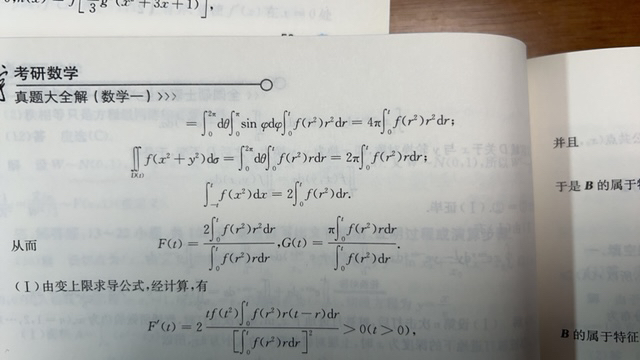 [\frac{3}{2} g'(x^2+3x+1)],
考研数学
真题大全解（数学一）>>>
=\int_0^{2\pi}dθ\int_0^{\pi}sin φdφ\int_0^t f(r²)r²dr=4π\int_0^t f(r²)r²dr;
\iint_{D(t)} f(x²+y²)dσ=\int_0^{2\pi}dθ\int_0^t f(r²)rdr=2π\int_0^t f(r²)rdr;
\int_{-t}^t f(x²)dx=2\int_0^t f(r²)dr.
从而 F(t)=\frac{2\int_0^t f(r²)r²dr}{\int_0^t f(r²)rdr},G(t)=\frac{π\int_0^t f(r²)rdr}{\int_0^t f(r²)dr}.
(Ⅰ)由变上限求导公式,经计算,有
F'(t)=2\frac{tf(t²)\int_0^t f(r²)r(t-r)dr}{[\int_0^t f(r²)rdr]^2}>0(t>0),
并且
于是 B 的属于特
B 的属于特征